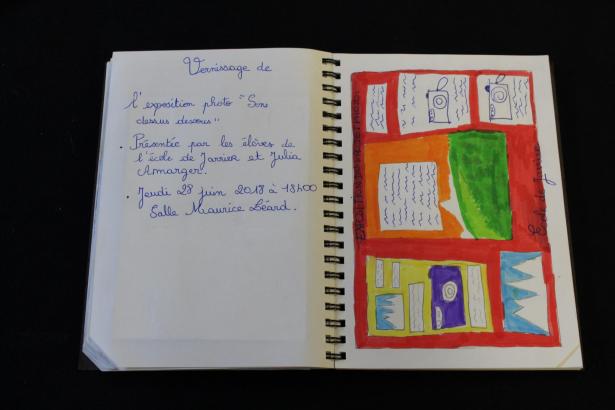 Vernissage de
l'exposition photo "Sens
dessus dessous"
. Présentée par les élèves de
l'école de Jarrier et Julia
Amarger.
. Jeudi 28 juin 2018 à 18h00
Salle Maurice Léard.
École de Jarrier